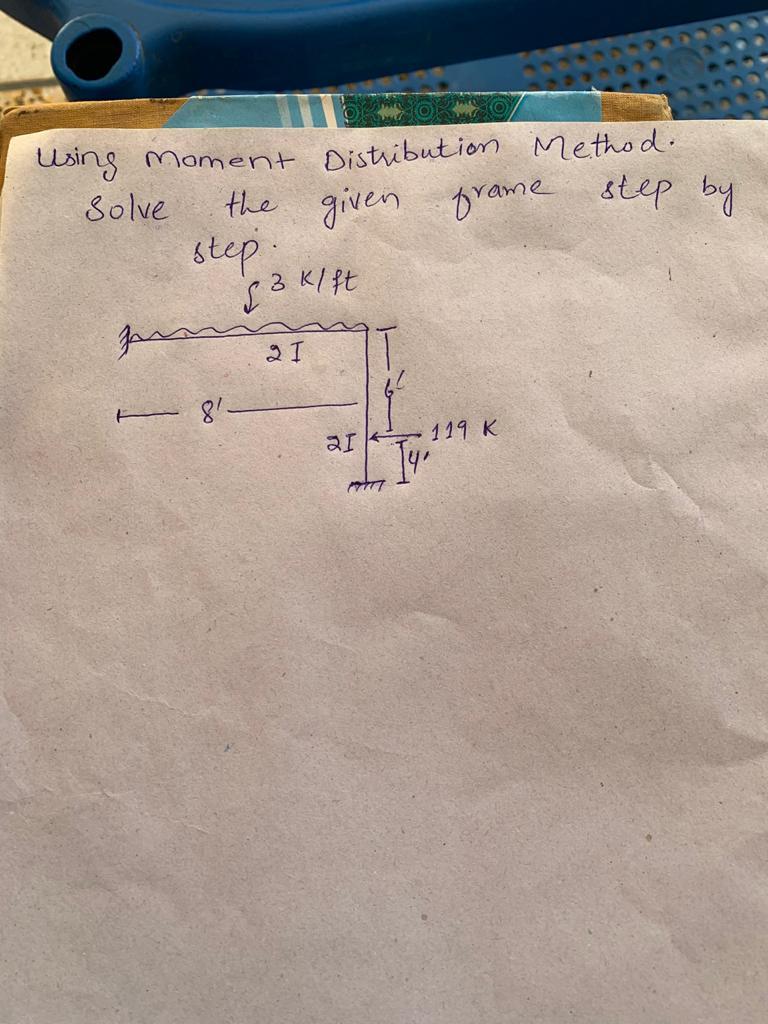 Using Moment Distribution Method.
Solve the given frame step by
step.
3 K/ft
2I
6'
8'
2I
119 K
4'